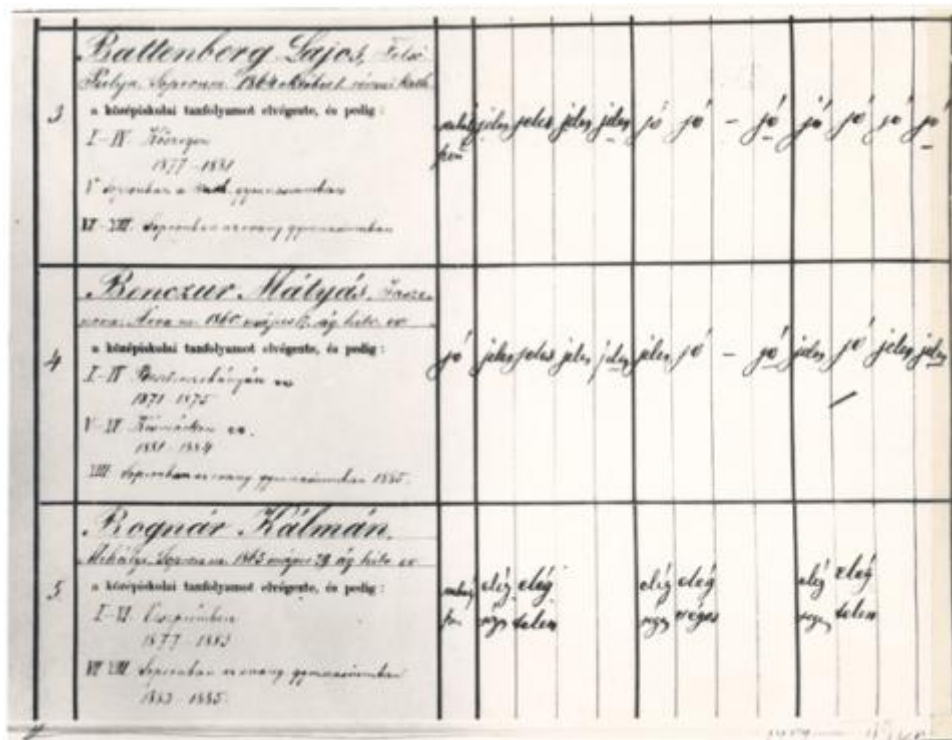 3
Battenberg Lajos, Felső
Pulya, Sopron m. 1864 október 1. római kath.
a középiskolai tanfolyamot elvégezte, és pedig:
I-IV Kőszegen
1877-1881
V Sopronban a kath. gymnasiumban
VI-VIII. Sopronban az evang gymnasiumban
jeles jeles jeles jeles jó jó - jó jó jó jó jó
4
Benczur Mátyás,
Árva m. 1860 május ág. hitv. ev
a középiskolai tanfolyamot elvégezte, és pedig:
I-IV Beszterczebányán ev
1871-1875
V-VII Késmárkon ev.
1881-1884
VIII. Sopronban az evang gymnasiumban 1885.
jó jeles jeles jeles jeles jeles jó - jó jeles jó jeles jeles
5
Bognár Kálmán,
Mihályi, Sopron m. 1863 május 29 ág. hitv. ev
a középiskolai tanfolyamot elvégezte, és pedig:
I-VI. Csepregben
1877-1883
VII VIII. Sopronban az evang gymnasiumban
1883-1885.
elég elég elég elég elég elég
telen séges telen